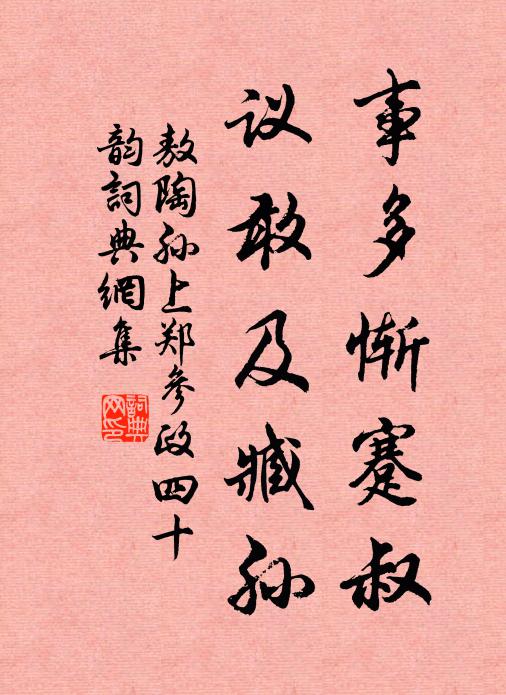 事多惭蹇叔
议敢及臧孙
敖陶孙上郑参政四十
韵詞典網集
詞典網印